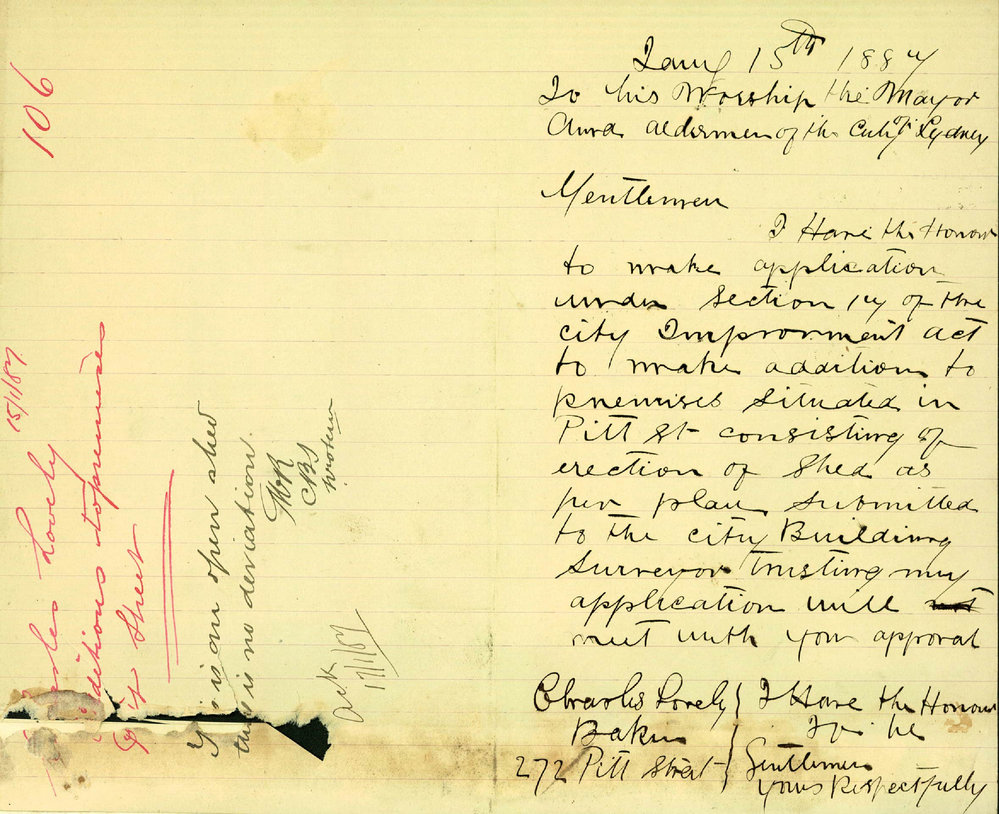 Jany 15th 1887
To his Worship the Mayor
and aldermen of the City of Sydney
Gentlemen
I Have the Honour
to make application
under Section 17 of the
city Improvment act
to make addition to
premises situated in
Pitt St consisting of
erection of Shed as
per plan submitted
to the city Building
Surveyor trusting my
application will not
meet with your approval
Charles Lovely
Baker
272 Pitt Street
I Have the Honour
To be
Gentlemen
yours Respectfully
106
Lovely 15/1/87
additions to premises
Street
is an open shed
there is no deviation.
CBS
Ack
17/1/87